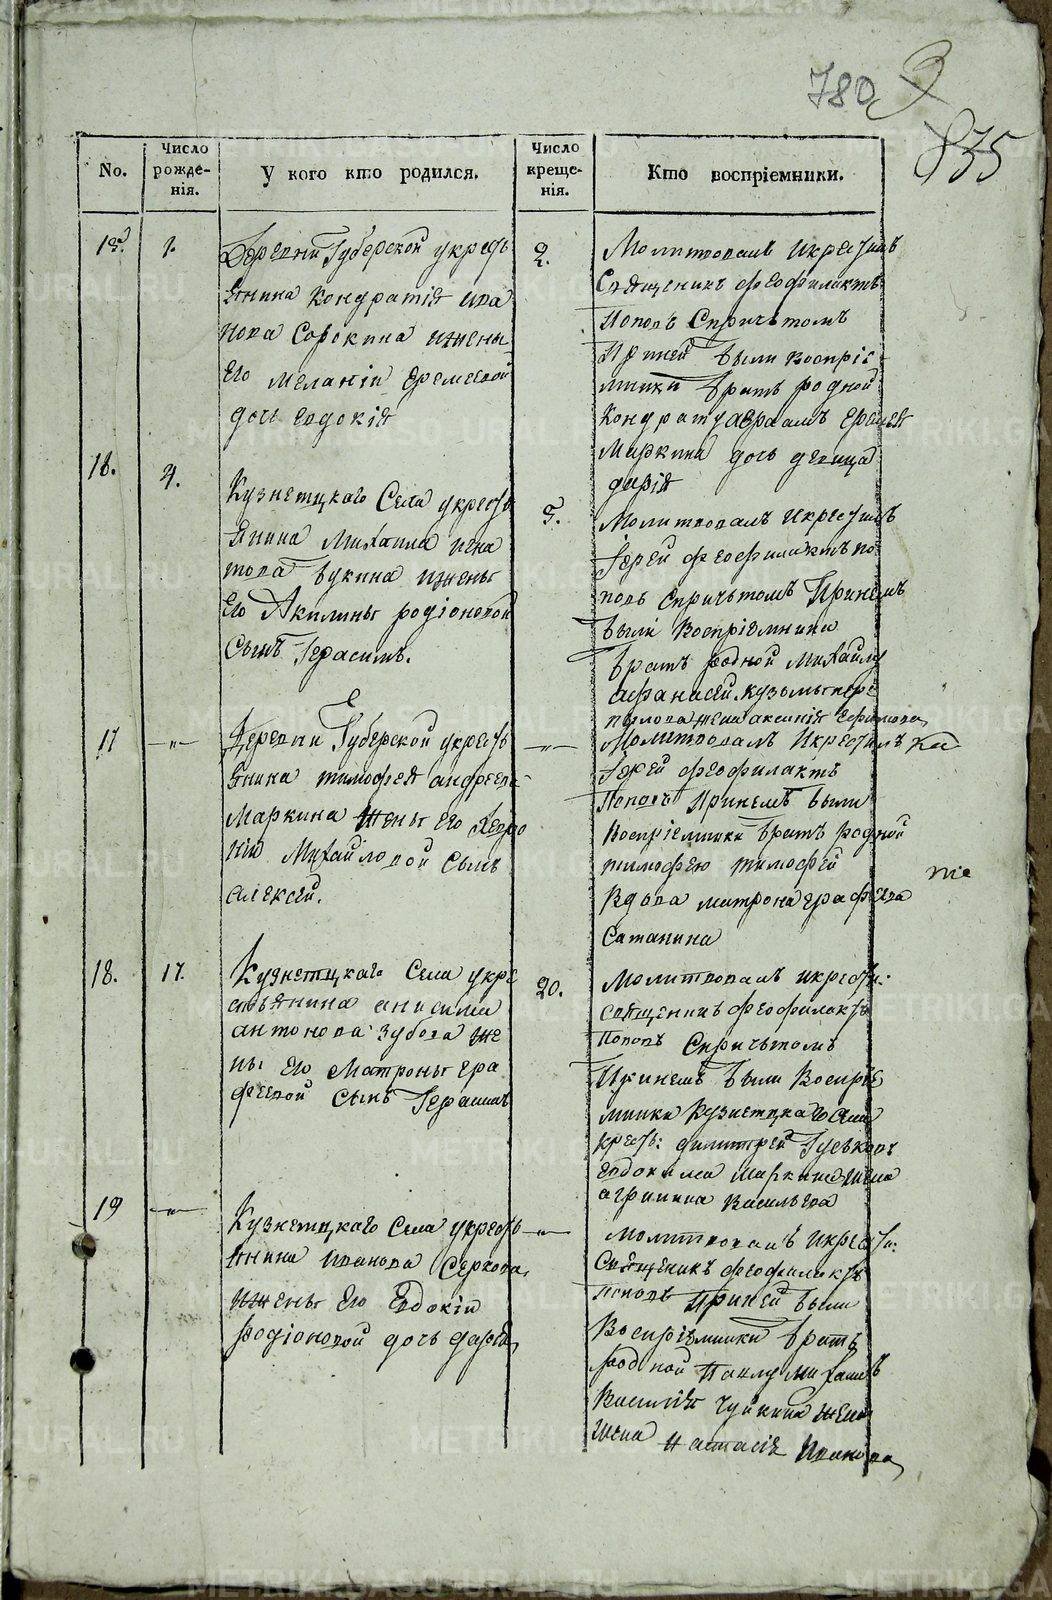 780
835
No.
Число рожде-нія.
У кого кто родился.
Число креще-нія.
Кто воспріемники.
15.
1.
Деревни Губерской укресть
янина Кондратія Ива
нова Сорокина ижены
Его Меланіи Еремеевой
дочь Евдокія
2.
Молитвовалъ Икрестилъ
Священникъ Феофилактъ
Поповъ Спричьтомъ
Приней были воспріе
мники братъ родной
Кондрату Авраамъ Еремея
Маркина дочь девица
дарія
16.
4.
Кузнетцкаго Села укресть
янина Михаила Игна
това букина ижены
Его Акилины родіоновой
Сынъ Герасимъ.
5.
Молитвовалъ Икрестилъ
Іерей Феофилактъ по
повъ Спричьтомъ Принемъ
были Воспріемники
братъ родной Михайлу
афанасей. кузмы
жена аксинія Ефимова
17
—"—
Деревни Губерской укресть
янина тимофея андреева
Маркина жены Его Февро
ніи Михайловой Сынъ
алексей.
—"—
Молитвовалъ Икрестилъ
Іерей Феофилактъ
Поповъ Принемъ были
Воспріемники братъ родной
тимофею тимофей
Вдова матрона ерафеева
Сатанина
18.
17.
Кузнетцкаго Села укре
стьянина анисима
антонова Зубова же
ны Его Матроны Ера
феевой Сынъ Герасимъ
20.
Молитвовалъ икрести:
священникъ феофилактъ
Поповъ Спричьтомъ
Принемъ были Воспріе
мники Кузнетцкаго Села
Кресть: димитрей Гуськовъ
Евдокима Маркина жена
агрипина Васильева
19
—"—
Кузнетцкаго Села укресть
янина Иванова Серкова,
ижены Его Евдокіи
Родіоновой дочь дарія,
—"—
Молитвовалъ Икрести:
Священникъ Феофилактъ
Поповъ Приней были
Воспріемники братъ
родной Павлу Михаилъ
Василія Чуйкина жена
жена Настасія Иванова,